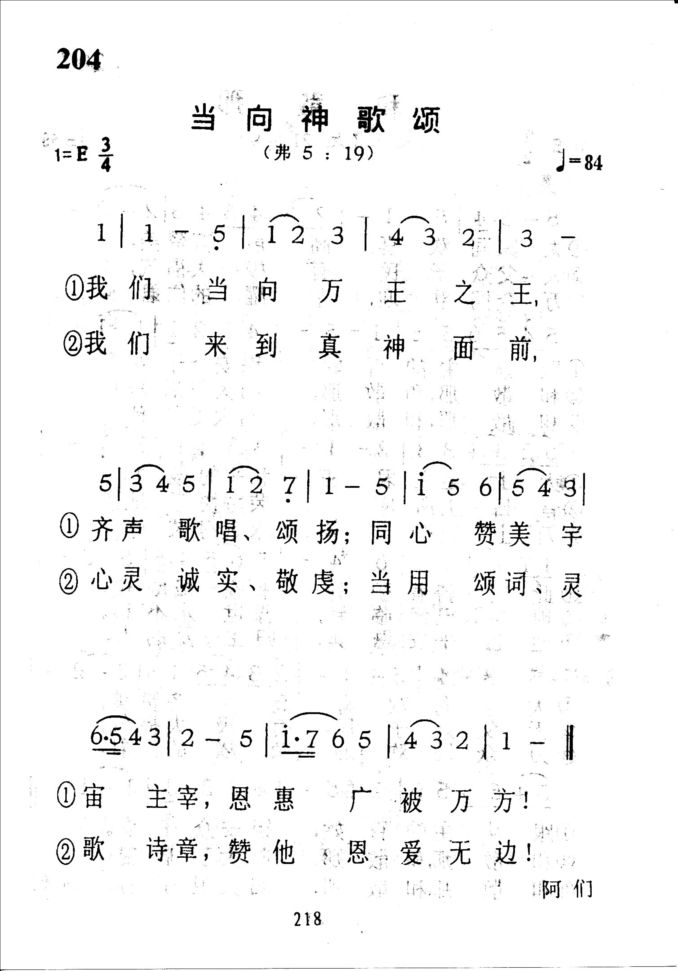 204
当向神歌颂
1=E 3/4 (弗5:19) ♩=84
1 | 1 - 5̣ | 1 2 3 | 4 3 2 | 3 -
①我们 当向万王之王,
②我们 来到真神面前,
5 | 3 4 5 | 1 2 7̣ | 1 - 5 | i̇ 5 6 | 5 4 3 |
①齐声 歌唱、颂扬;同心 赞美宇
②心灵 诚实、敬虔;当用 颂词、灵
6·5 4 3 | 2 - 5 | i̇·7 6 5 | 4 3 2 | 1 - ‖
①宙 主宰,恩惠 广被万方!
②歌 诗章,赞他 恩爱无边!
阿们
218